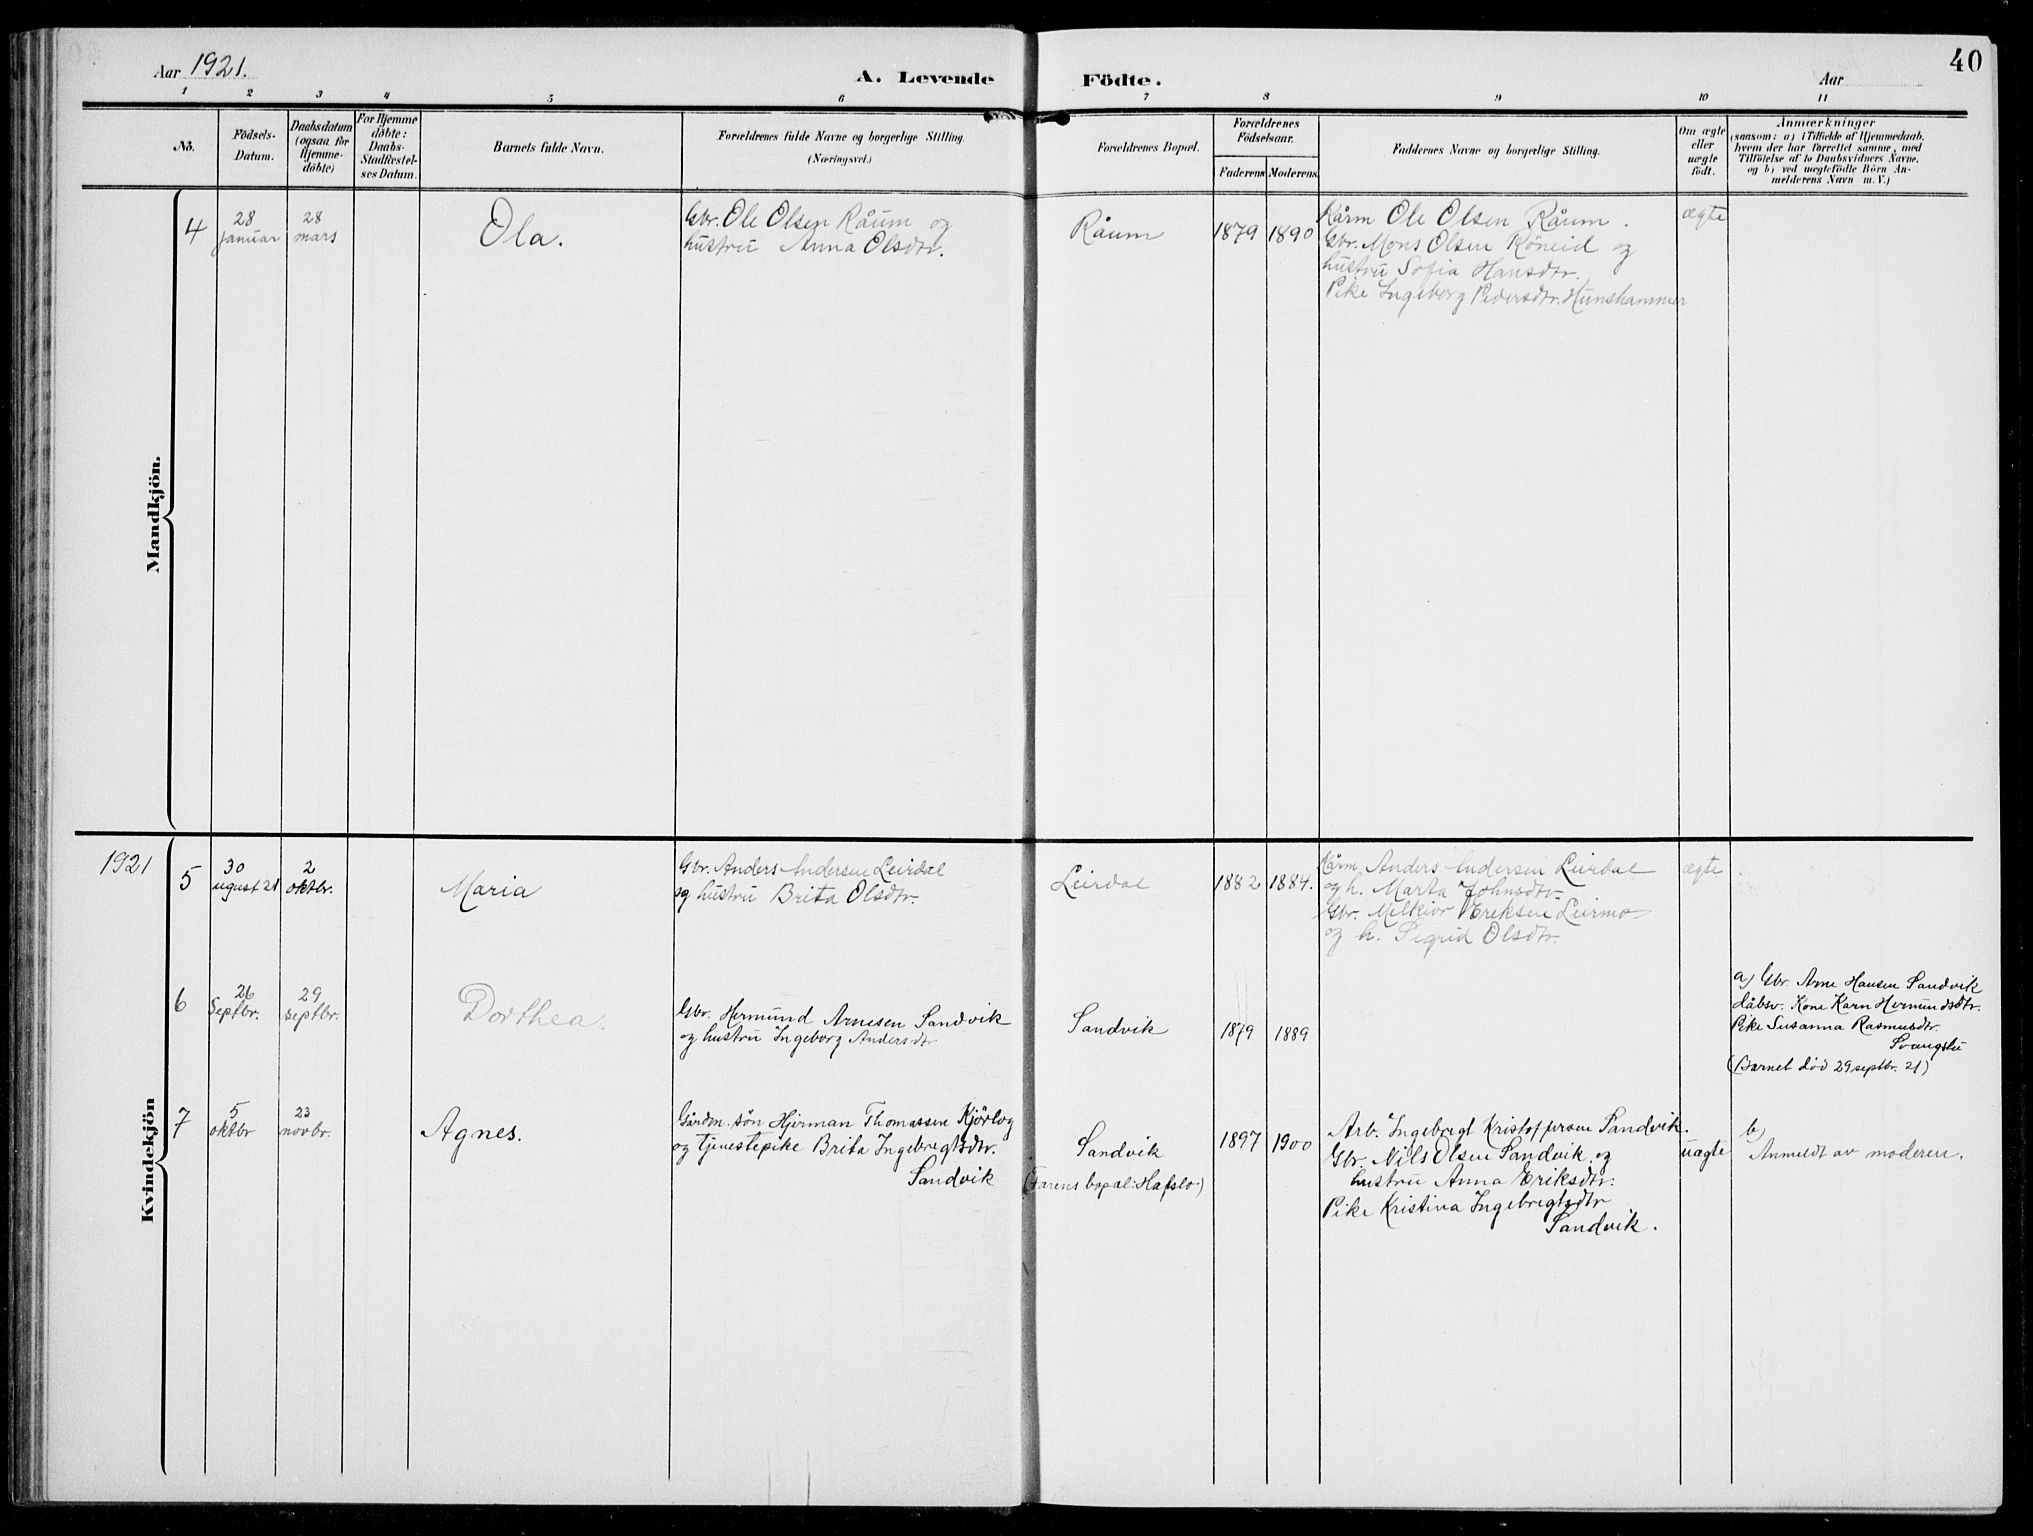 40
Aar 1921.
A. Levende Födte.
Aar
1 2 3 4 5 6 7 8 9 10 11
No.
Födsels-
Datum.
Daabsdatum
(ogsaa for
Hjemme-
döbte)
For Hjemme
döbte:
Daabs-
Stadfæstel-
ses Datum.
Barnets fulde Navn.
Forældrenes fulde Navne og borgerlige Stilling.
(Næringsvei.)
Forældrenes Bopæl.
Forældrenes
Födselsaar.
Faderens Moderens.
Faddernes Navne og borgerlige Stilling.
Om ægte
eller
uægte
födt.
Anmærkninger
(saasom: a) i Tilfælde af Hjemmedaab,
hvem der har forrettet samme, med
Tilföielse af to Daabsvidners Navne,
og b) ved uægtefödte Börn An-
melderens Navn m. V.)
Mandkjön.
4
28
januar
28
mars
Ola.
Gbr. Ole Olsen Råum og
hustru Anna Olsdtr.
Råum
1879 1890
Kårm Ole Olsen Råum.
Gbr. Mons Olsen Röneid og
hustru Sofia Hansdtr.
Pike Ingeborg Pedersdtr. Hunshammer
ægte
Kvindekjön
1921
5
30
ugust 21
2
oktbr.
Maria
Gbr. Anders Andersen Leirdal
og hustru Brita Olsdtr.
Leirdal
1882 1884.
Kårm. Anders Andersen Leirdal
og h. Marta Johnsdtr.
Gbr. Melkior Eriksen Leirmo
og h. Sigrid Olsdtr.
ægte
6
26
Septbr.
29
septbr.
Dorthea.
Gbr. Hermund Arnesen Sandvik
og hustru Ingeborg Andersdtr
Sandvik
1879 1889
a) Gbr. Arne Hansen Sandvik
dåbsv. Kone Karn Hermundsdtr.
Pike Susanna Rasmusdtr.
(Barnet död 29 septbr. 21)
7
5
oktbr
23
novbr.
Agnes.
Gårdm. sön Hjerman Thomassen Kjörlog
og tjenestepike Brita Ingebregtsdtr.
Sandvik
Sandvik
(Farens bopæl: Hafslo.)
1897 1900
Arb. Ingebregt Kristoffersen Sandvik.
Gbr. Nils Olsen Sandvik og
hustru Anna Eriksdtr.
Pike Kristina Ingebregtsdtr
Sandvik.
uægte
b)
Anmeldt av moderen.